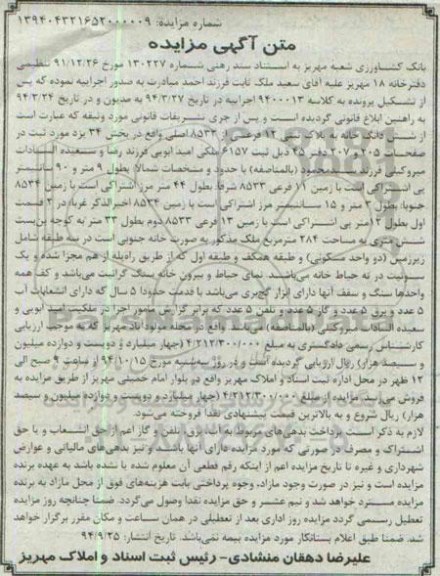 شماره مزایده: ۱۳۹۴۰۴۳۲۱۶۵۲۰۰۰۰۰۹
متن آگهی مزایده
بانک کشاورزی شعبه مهریز به استناد سند رهنی شماره ۱۳۰۲۲۷ مورخ ۹۱/۱۲/۲۶ تنظیمی
دفترخانه ۱۸ مهریز علیه آقای سعید ملک ثابت فرزند احمد مبادرت به صدور اجراییه نموده که پس
از تشکیل پرونده به کلاسه ۹۴۰۰۰۱۳ اجراییه در تاریخ ۹۴/۳/۲۷ به مدیون و در تاریخ ۹۴/۳/۲۴
به راهنین ابلاغ قانونی گردیده است و پس از جری تشریفات قانونی مورد وثیقه که عبارت است
از ششدانگ خانه به پلاک ۱۲ فرعی از ۸۵۳۳ اصلی واقع در بخش ۳۴ یزد مورد ثبت در
صفحات ۲۰۵ و ۲۰۷ دفتر ۴۵ ذیل ثبت ۶۱۵۷ ملکی امید ایوبی فرزند رضا و سعیده السادات
میروکیلی فرزند سیدمحمود (بالمناصفه) با حدود و مشخصات شمالا بطول ۹ متر و ۹۰ سانتیمتر
پی اشتراکی است با زمین ۱۱ فرعی ۸۵۳۳ شرقا: بطول ۴۴ متر مرز اشتراکی است با زمین ۸۵۳۴
جنوبا: بطول ۳ متر و ۱۵ سانتیمتر مرز اشتراکی است با زمین ۸۵۳۴ اخیرالذکر غربا: در ۲ قسمت
اول بطول ۱۲ متر پی اشتراکی است با زمین ۱۳ فرعی ۸۵۳۳ دوم بطول ۳۳ متر به کوچه بن‌بست
شش متری به مساحت ۲۸۴ مترمربع ملک مذکور به صورت خانه جنوبی است در سه طبقه شامل
زیرزمین (دو واحد مسکونی) و طبقه همکف و طبقه اول که از طریق راه‌پله از هم مجزا شده و یک
سوئیت در ته حیاط خانه می‌باشد. نمای حیاط و بیرون خانه سنگ گرانیت می‌باشد و کف همه
واحدها سنگ و سقف آنها دارای ابزار گچبری می‌باشد با قدمت حدودا ۵ سال که دارای انشعابات آب
۵ عدد و برق ۵ عدد و گاز ۵ عدد و تلفن ۵ عدد که برابر گزارش مامور اجرا در ملکیت امید ایوبی و
سعیده السادات میروکیلی (بالمناصفه) می‌باشد واقع در محله مولودآباد مهریز که به موجب ارزیابی
کارشناس رسمی دادگستری به مبلغ ۴/۲۱۲/۳۰۰/۰۰۰ (چهار میلیارد و دویست و دوازده میلیون
و سیصد هزار) ریال ارزیابی گردیده است و در روز سه‌شنبه مورخ ۹۴/۱۰/۱۵ از ساعت ۹ صبح الی
۱۲ ظهر در محل اداره ثبت اسناد و املاک مهریز واقع در بلوار امام خمینی مهریز از طریق مزایده به
فروش می‌رسد. مزایده از مبلغ ۴/۲۱۲/۳۰۰/۰۰۰ (چهار میلیارد و دویست و دوازده میلیون و سیصد
هزار) ریال شروع و به بالاترین قیمت پیشنهادی نقدا فروخته می‌شود.
لازم به ذکر است پرداخت بدهی‌های مربوط به آب، برق، تلفن و گاز اعم از حق انشعاب و یا حق
اشتراک و مصرف در صورتی که مورد مزایده دارای آنها باشد و نیز بدهی‌های مالیاتی و عوارض
شهرداری و غیره تا تاریخ مزایده اعم از اینکه رقم قطعی آن معلوم شده یا نشده باشد به عهده برنده
مزایده است و نیز در صورت وجود مازاد، وجوه پرداختی بابت هزینه‌های فوق از محل مازاد به برنده
مزایده مسترد خواهد شد و نیم عشر و حق مزایده نقدا وصول می‌گردد. ضمنا چنانچه روز مزایده
تعطیل رسمی گردد مزایده روز اداری بعد از تعطیلی در همان ساعت و مکان مقرر برگزار خواهد
شد. ضمنا طبق اعلام بستانکار مورد مزایده بیمه نمی‌باشد. تاریخ انتشار: ۹۴/۹/۲۵
علیرضا دهقان منشادی- رئیس ثبت اسناد و املاک مهریز